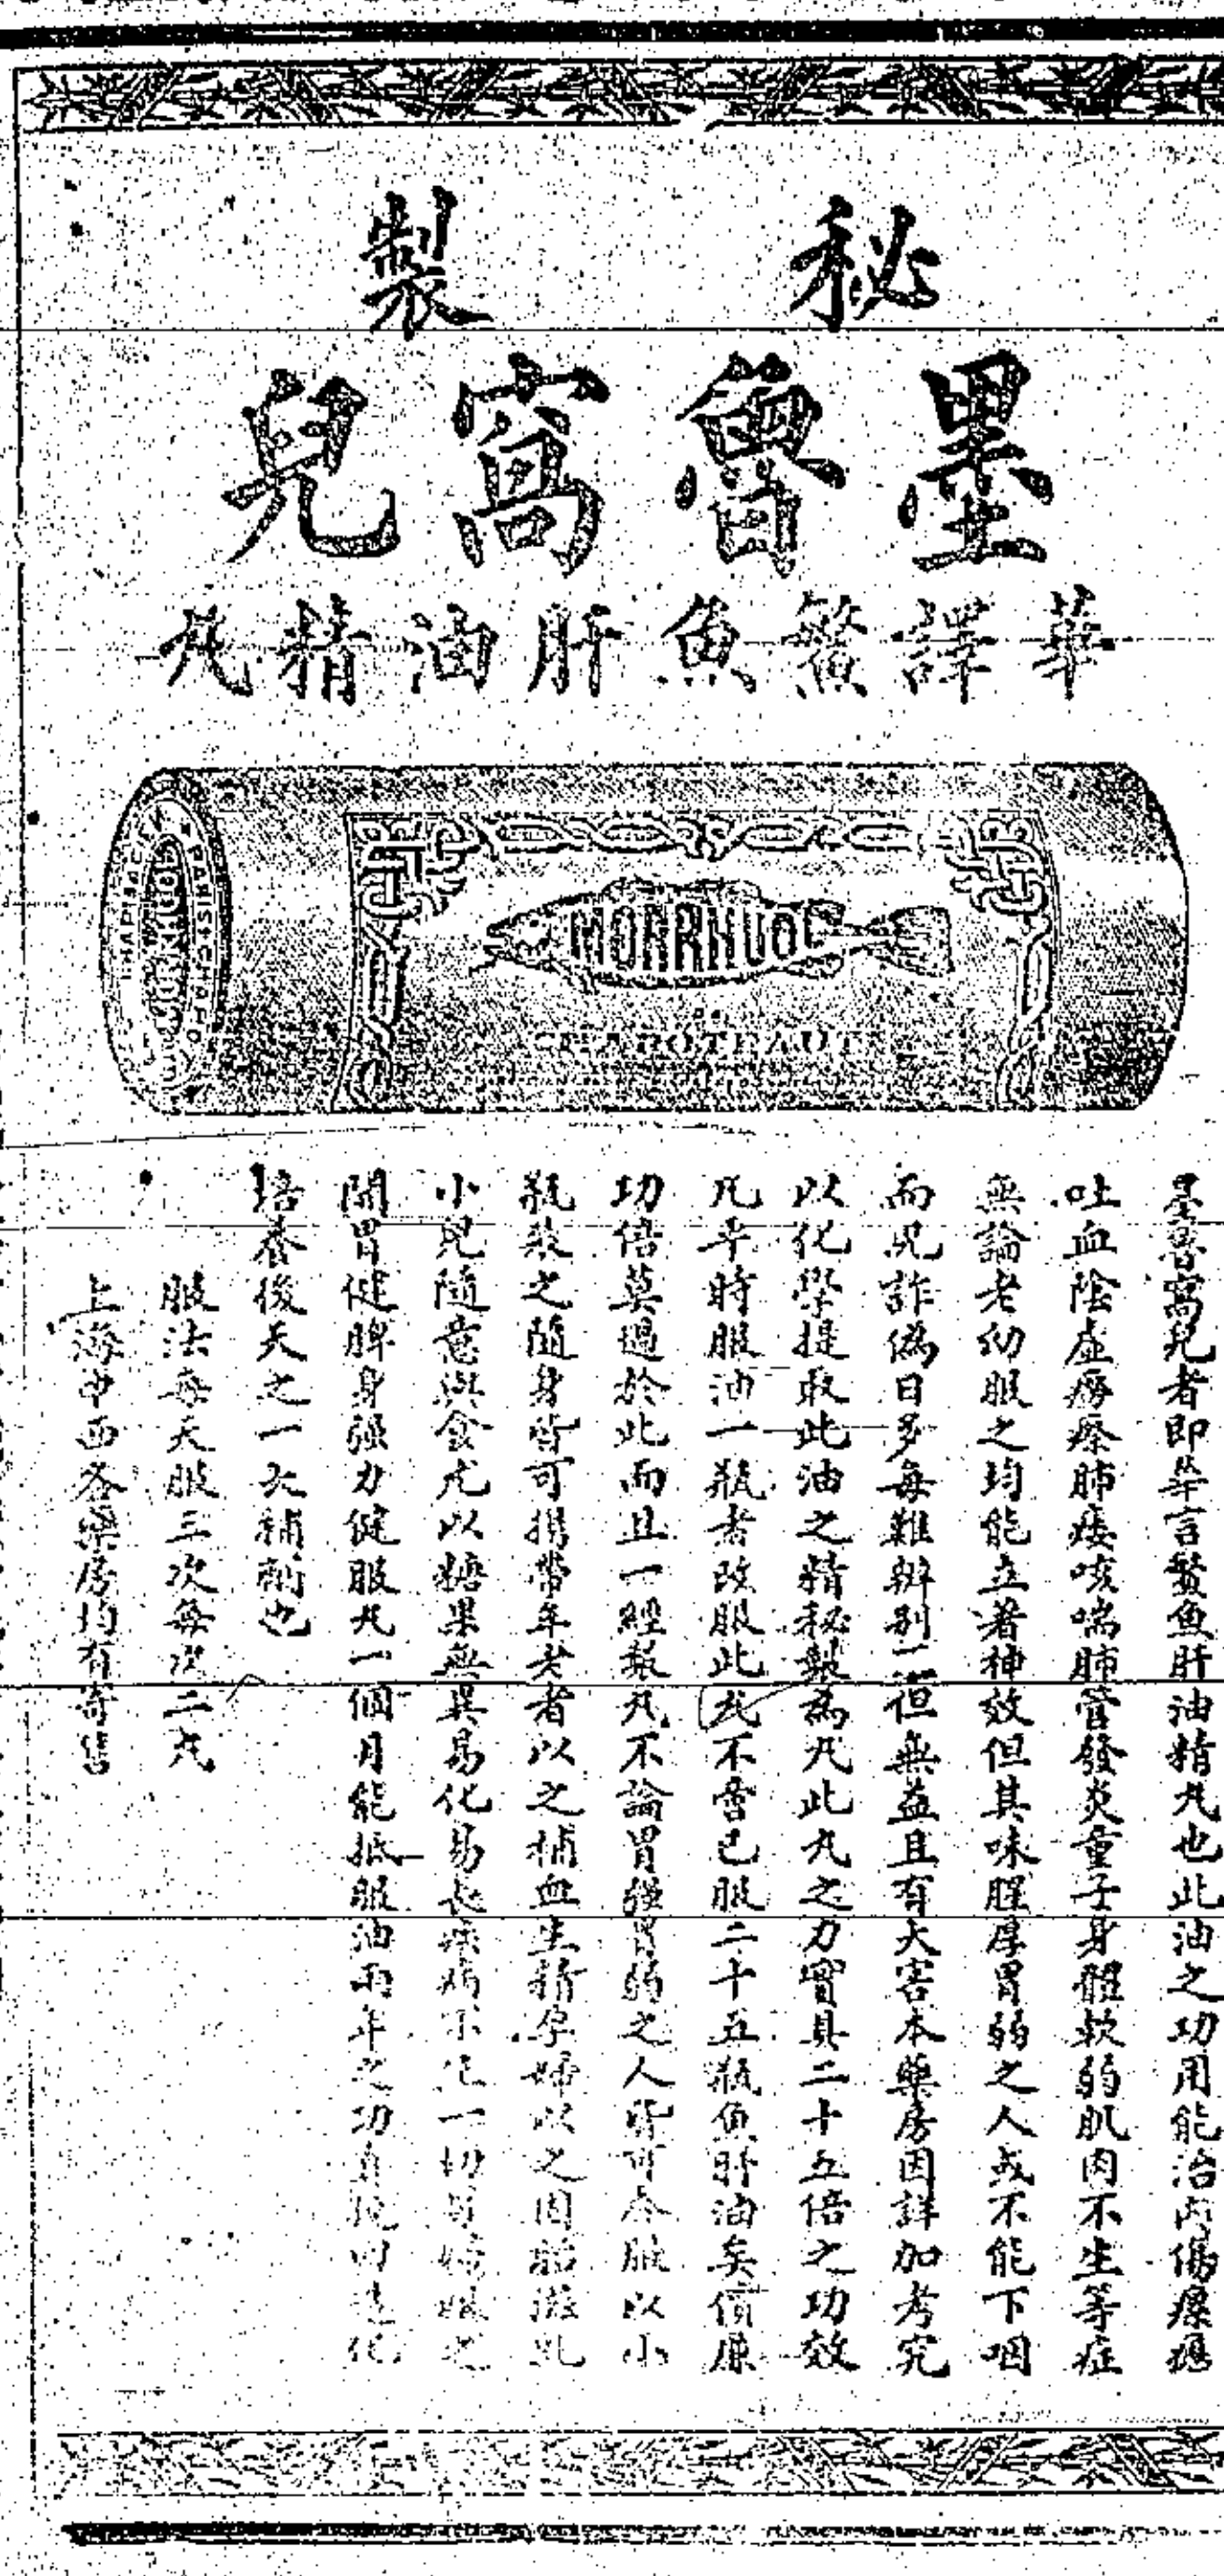 秘製
墨魯窩兒
華譯鰵魚肝油精丸
MORRHUOL
CHAPOTEAUT
墨魯窩兒者即華言鰵魚肝油精丸也此油之功用能治內傷瘰癧
吐血陰虛癆瘵肺痿咳喘肺管發炎童子身體軟弱肌肉不生等症
無論老幼服之均能立著神效但其味腥厚胃弱之人或不能下咽
而況詐偽日多每難辨別一但無益且有大害本藥房因詳加考究
以化學提取此油之精秘製為丸此丸之力實具二十五倍之功效
凡平時服油一瓶者改服此丸不啻已服二十五瓶魚肝油矣價廉
功倍莫過於此而且一經製丸不論胃強胃弱之人皆可吞服以小
瓶裝之隨身皆可攜帶年老者以之補血生精孕婦以之固胎滋乳
小兒隨意與食尤以糖果無異易化易長疾病不生一切
開胃健脾身強力健服丸一個月能抵服油兩年之功
培養後天之一大補劑也
服法每天服三次每次二丸
上海中西各藥房均有寄售